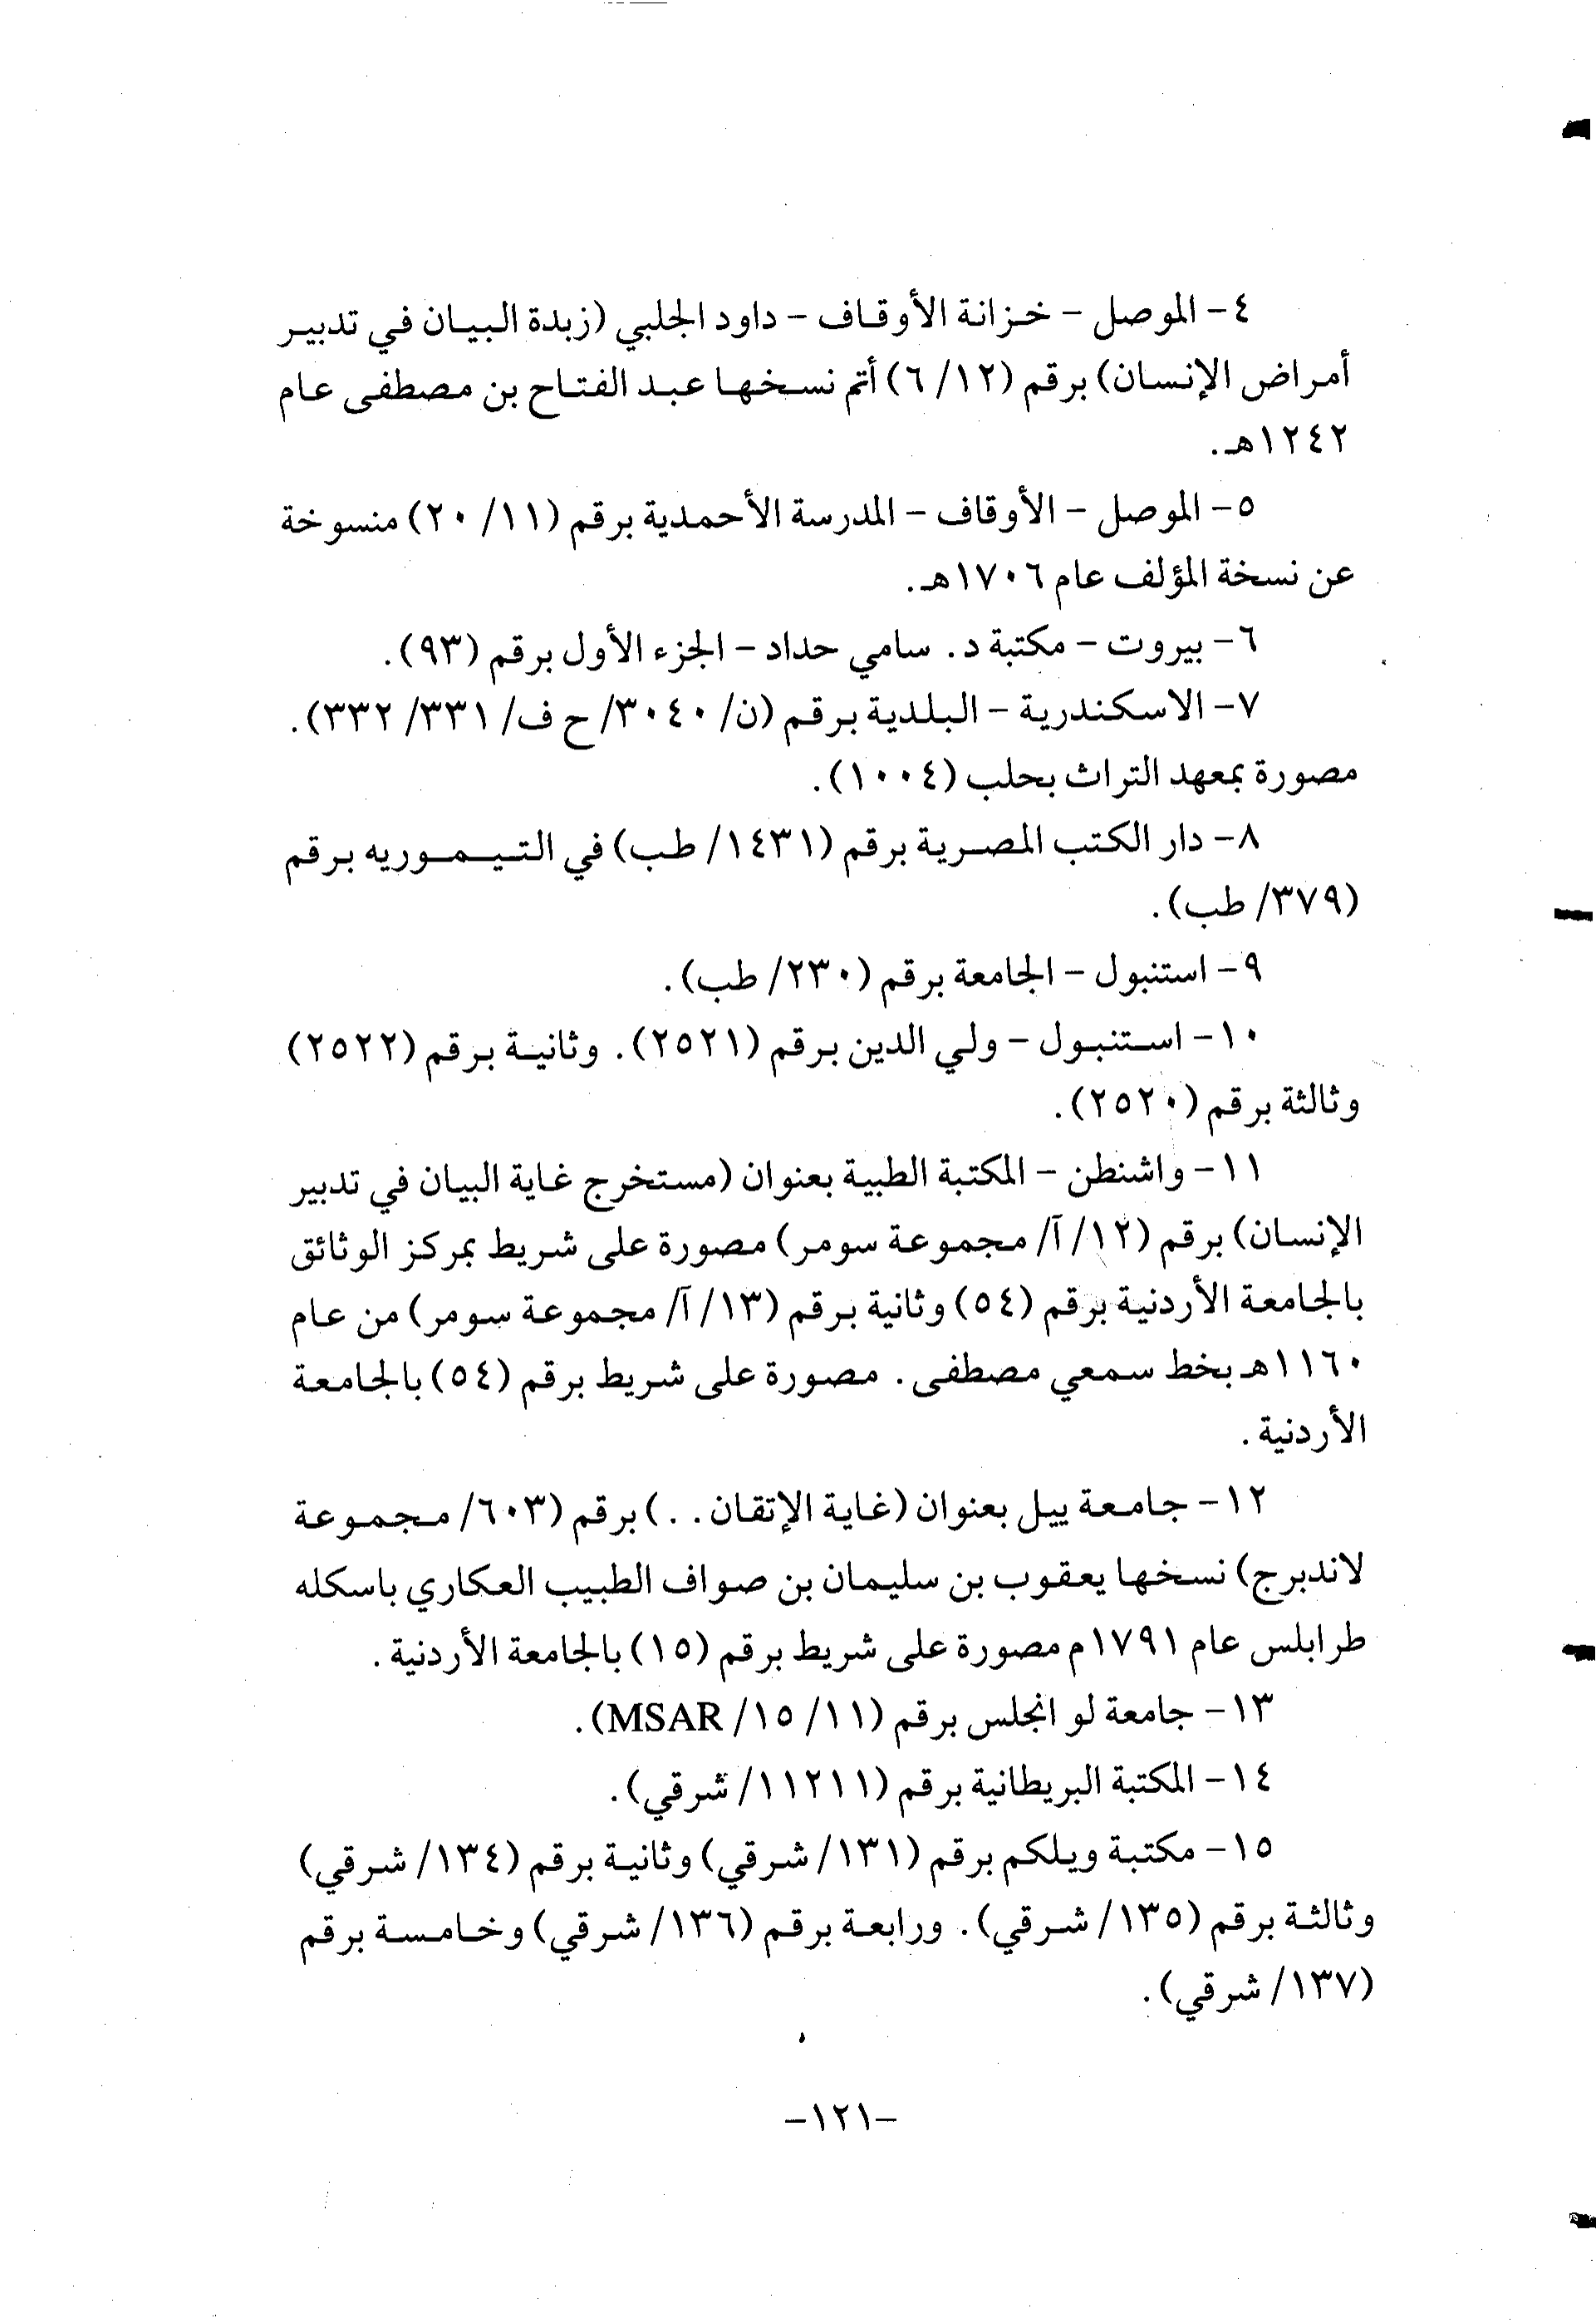 ٤- الموصل - خزانة الأوقاف - داود الجلبي (زبدة البيان في تدبير
أمراض الإنسان) برقم (١٢/ ٦) أتم نسخها عبد الفتاح بن مصطفى عام
١٢٤٢هـ.
٥- الموصل - الأوقاف - المدرسة الأحمدية برقم (١١/ ٢٠) منسوخة
عن نسخة المؤلف عام ١٧٠٦هـ.
٦- بيروت - مكتبة د. سامي حداد - الجزء الأول برقم (٩٣).
٧- الاسكندرية - البلدية برقم (ن/ ٣٠٤٠/ ح ف/ ٣٣١/ ٣٣٢).
مصورة بمعهد التراث بحلب (١٠٠٤).
٨- دار الكتب المصرية برقم (١٤٣١/ طب) في التيموريه برقم
(٣٧٩/ طب).
٩- استنبول - الجامعة برقم (٢٣٠/ طب).
١٠- استنبول - ولي الدين برقم (٢٥٢١). وثانية برقم (٢٥٢٢)
وثالثة برقم (٢٥٢٠).
١١- واشنطن - المكتبة الطبية بعنوان (مستخرج غاية البيان في تدبير
الإنسان) برقم (١٢/ آ/ مجموعة سومر) مصورة على شريط بمركز الوثائق
بالجامعة الأردنية برقم (٥٤) وثانية برقم (١٣/ آ/ مجموعة سومر) من عام
١١٦٠هـ بخط سمعي مصطفى. مصورة على شريط برقم (٥٤) بالجامعة
الأردنية.
١٢- جامعة ييل بعنوان (غاية الإتقان..) برقم (٦٠٣/ مجموعة
لاندبرج) نسخها يعقوب بن سليمان بن صواف الطبيب العكاري باسكله
طرابلس عام ١٧٩١م مصورة على شريط برقم (١٥) بالجامعة الأردنية.
١٣- جامعة لو انجلس برقم (١١/ ١٥/ MSAR).
١٤- المكتبة البريطانية برقم (١١٢١١/ شرقي).
١٥- مكتبة ويلكم برقم (١٣١/ شرقي) وثانية برقم (١٣٤/ شرقي)
وثالثة برقم (١٣٥/ شرقي). ورابعة برقم (١٣٦/ شرقي) وخامسة برقم
(١٣٧/ شرقي).
-١٢١-